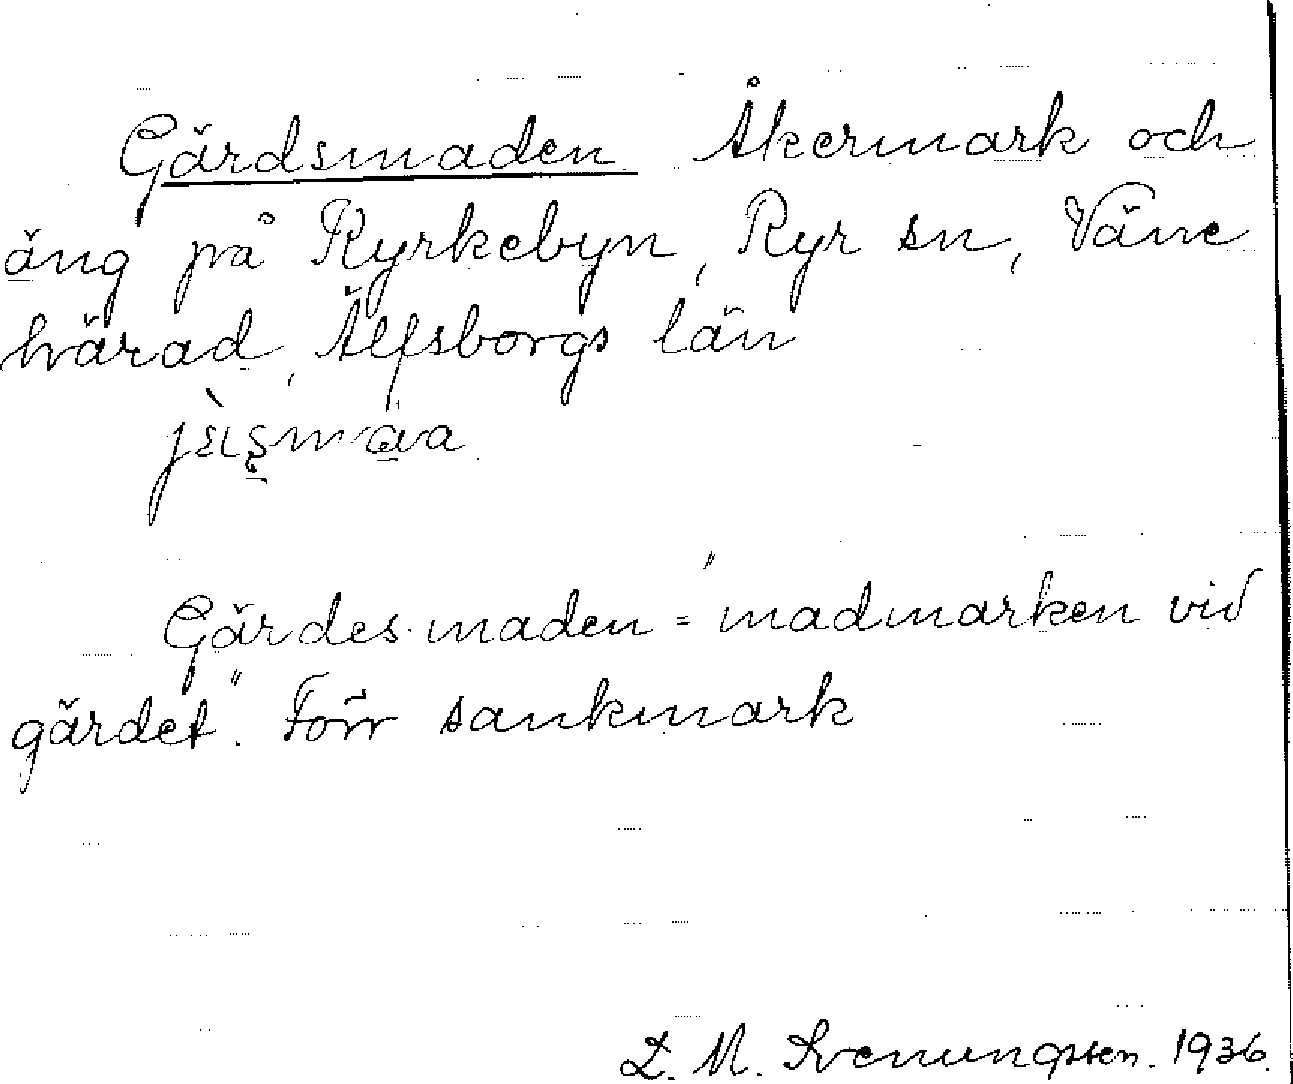 Gärdsmaden Åkermark och
äng på Kyrkebyn, Ryr sn, Väne
härad, Älfsborgs län
Gärdes-maden = "madmarken vid
gärdet". Förr sankmark
L. M. Svenungsson. 1936.